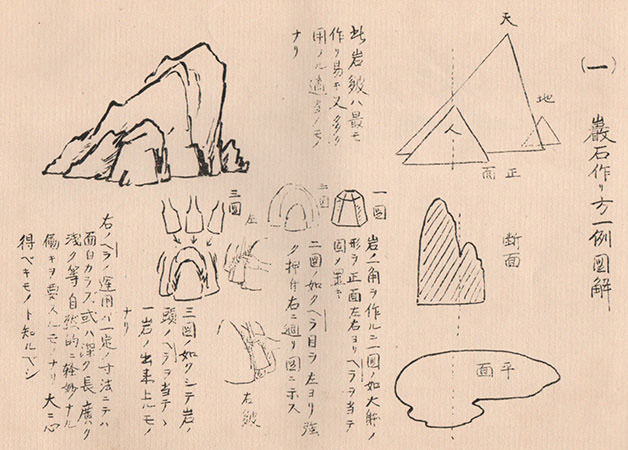 (一) 巖石作リ方一例図解
天
地
人
正面
断面
平面
此岩皴ハ最モ
作リ易キ又多ク
用フル適当ノモノ
ナリ
一図
岩ノ一角ヲ作ルニ一図ノ如大体ノ
形ヲ正面左右ヨリヘラヲ当テ
固メ置キ
二図
二図ノ如クヘラ目ヲ左ヨリ強
ク押付右ニ廻リ図ニ示ス
左
右皴
三図
三図ノ如クシテ岩ノ
頭ノヘラヲ当テヽ
一岩ノ出来上ルモノ
ナリ
右ノヘラノ運用ハ一定ノ寸法ニテハ
面白カラズ或ハ深ク長ク廣ク
浅ク等自然的ニ軽妙ナル
働キヲ要スルモノナリ大ニ心
得ベキモノト知ルベシ